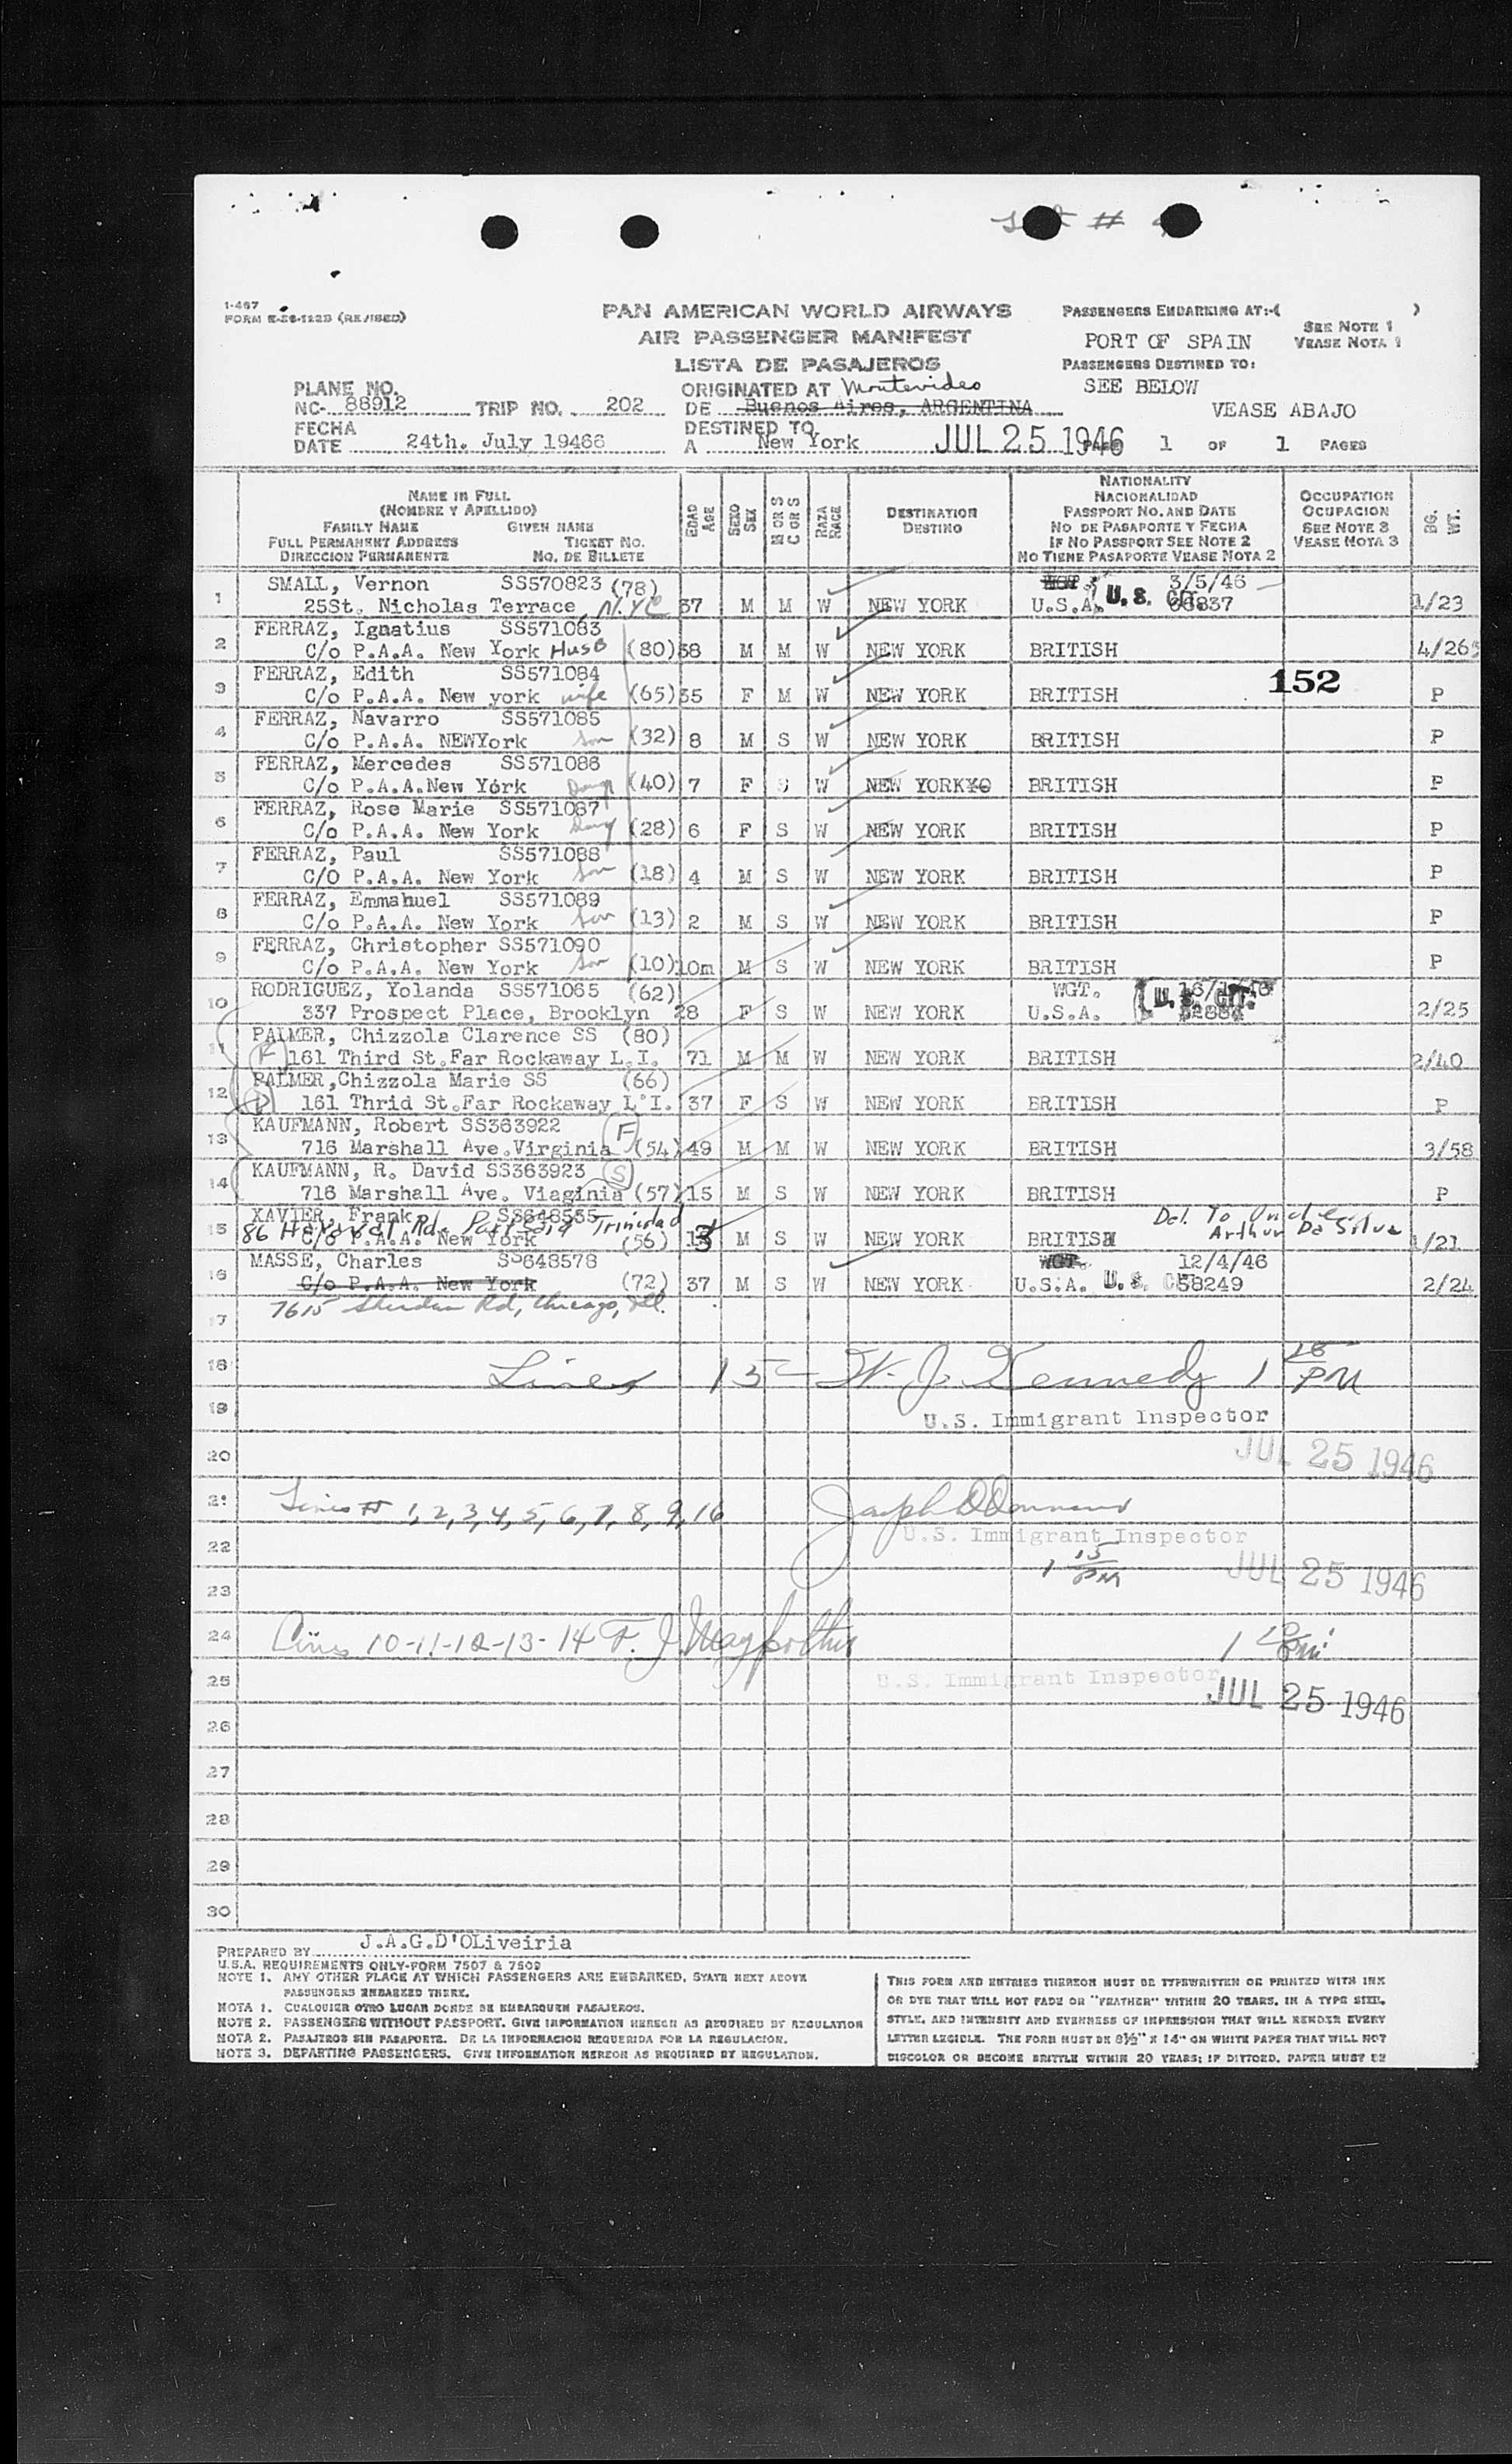 1-467
FORM E-26-122B (REVISED)
PAN AMERICAN WORLD AIRWAYS
AIR PASSENGER MANIFEST
LISTA DE PASAJEROS
PASSENGERS EMBARKING AT:-( )
SEE NOTE 1
PORT OF SPAIN VEASE NOTA 1
PASSENGERS DESTINED TO:
SEE BELOW
VEASE ABAJO
PLANE NO.
NC- 88912 TRIP NO. 202
ORIGINATED AT Montevideo
DE Buenos Aires, ARGENTINA
FECHA
DATE 24th. July 19466
DESTINED TO
A New York JUL 25 1946 PAGE 1 OF 1 PAGES
NAME IN FULL
(NOMBRE Y APELLIDO)
FAMILY NAME GIVEN NAME
FULL PERMANENT ADDRESS TICKET NO.
DIRECCION PERMANENTE NO. DE BILLETE
EDAD AGE
SEXO SEX
M OR S C OR S
RAZA RACE
DESTINATION
DESTINO
NATIONALITY
NACIONALIDAD
PASSPORT NO. AND DATE
NO DE PASAPORTE Y FECHA
IF NO PASSPORT SEE NOTE 2
NO TIENE PASAPORTE VEASE NOTA 2
OCCUPATION
OCUPACION
SEE NOTE 3
VEASE NOTA 3
BG. WT.
1 SMALL, Vernon SS570823 (78) 3/5/46
25St. Nicholas Terrace, N.Y.C 37 M M W NEW YORK U.S.A. U.S. CIT. 66837 1/23
2 FERRAZ, Ignatius SS571083
C/o P.A.A. New York Husb (80) 38 M M W NEW YORK BRITISH 4/265
3 FERRAZ, Edith SS571084
C/o P.A.A. New york wife (65) 35 F M W NEW YORK BRITISH 152 P
4 FERRAZ, Navarro SS571085
C/o P.A.A. NEWYork Son (32) 8 M S W NEW YORK BRITISH P
5 FERRAZ, Mercedes SS571086
C/o P.A.A.New York Daug (40) 7 F S W NEW YORK BRITISH P
6 FERRAZ, Rose Marie SS571087
C/o P.A.A. New York Daug (28) 6 F S W NEW YORK BRITISH P
7 FERRAZ, Paul SS571088
C/O P.A.A. New York Son (18) 4 M S W NEW YORK BRITISH P
8 FERRAZ, Emmahuel SS571089
C/o P.A.A. New York Son (13) 2 M S W NEW YORK BRITISH P
9 FERRAZ, Christopher SS571090
C/o P.A.A. New York Son (10) 10m M S W NEW YORK BRITISH P
10 RODRIGUEZ, Yolanda SS571065 (62) WGT.
337 Prospect Place, Brooklyn 28 F S W NEW YORK U.S.A. U.S. CIT. 2/25
11 PALMER, Chizzola Clarence SS (80)
F 161 Third St.Far Rockaway L.I. 71 M M W NEW YORK BRITISH 2/40
12 PALMER,Chizzola Marie SS (66)
D 161 Thrid St.Far Rockaway L.I. 37 F S W NEW YORK BRITISH P
13 KAUFMANN, Robert SS363922
716 Marshall Ave.Virginia F (54) 49 M M W NEW YORK BRITISH 3/58
14 KAUFMANN, R. David SS363923 S
716 Marshall Ave. Viaginia (57) 15 M S W NEW YORK BRITISH P
15 XAVIER, Frank SS648535 Del. To Uncle
86 Rd. Port Spain Trinidad Arthur Da Silva
C/o P.A.A. New York (56) 13 M S W NEW YORK BRITISH 1/21
16 MASSE, Charles SS648578 WGT. 12/4/46
C/o P.A.A. New York (72) 37 M S W NEW YORK U.S.A. U.S. 58249 2/24
7615 Sheridan Rd, Chicago, Ill.
17
18 Lines 15 W. J. Kennedy 1 15 PM
19 U.S. Immigrant Inspector
20 JUL 25 1946
21 Lines # 1, 2, 3, 4, 5, 6, 7, 8, 9, 16 Joseph
22 U.S. Immigrant Inspector
1 15 PM JUL 25 1946
23
24 Lines 10-11-12-13-14 F. J.
25 U.S. Immigrant Inspector
JUL 25 1946
26
27
28
29
30
PREPARED BY J.A.G.D'OLiveiria
U.S.A. REQUIREMENTS ONLY-FORM 7507 & 7509
NOTE 1. ANY OTHER PLACE AT WHICH PASSENGERS ARE EMBARKED, STATE NEXT ABOVE
PASSENGERS EMBARKED THERE.
NOTA 1. CUALQUIER OTRO LUGAR DONDE SE EMBARQUEN PASAJEROS.
NOTE 2. PASSENGERS WITHOUT PASSPORT. GIVE INFORMATION HEREON AS REQUIRED BY REGULATION
NOTA 2. PASAJEROS SIN PASAPORTE. DE LA INFORMACION REQUERIDA POR LA REGULACION.
NOTE 3. DEPARTING PASSENGERS. GIVE INFORMATION HEREON AS REQUIRED BY REGULATION.
THIS FORM AND ENTRIES THEREON MUST BE TYPEWRITTEN OR PRINTED WITH INK
OR DYE THAT WILL NOT FADE OR "FEATHER" WITHIN 20 YEARS, IN A TYPE SIZE,
STYLE, AND INTENSITY AND EVENNESS OF IMPRESSION THAT WILL RENDER EVERY
LETTER LEGIBLE. THE FORM MUST BE 8½" X 14" ON WHITE PAPER THAT WILL NOT
DISCOLOR OR BECOME BRITTLE WITHIN 20 YEARS; IF DITTOED, PAPER MUST BE